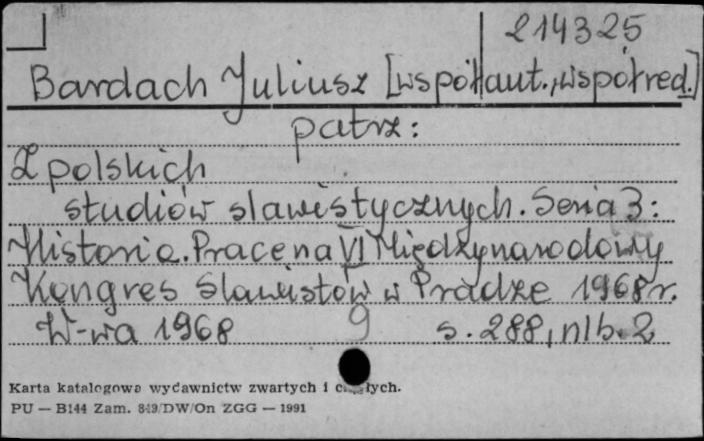 214325
Bardach Juliusz [współaut., współred.]
patrz:
Z polskich
studiów slawistycznych. Seria 3:
Historia. Prace na VI Międzynarodowy
Kongres Slawistów w Pradze 1968 r.
W-wa 1968 9 s. 288, nlb. 2
Karta katalogowa wydawnictw zwartych i
PU — B144 Zam. 849/DW/On ZGG — 1991